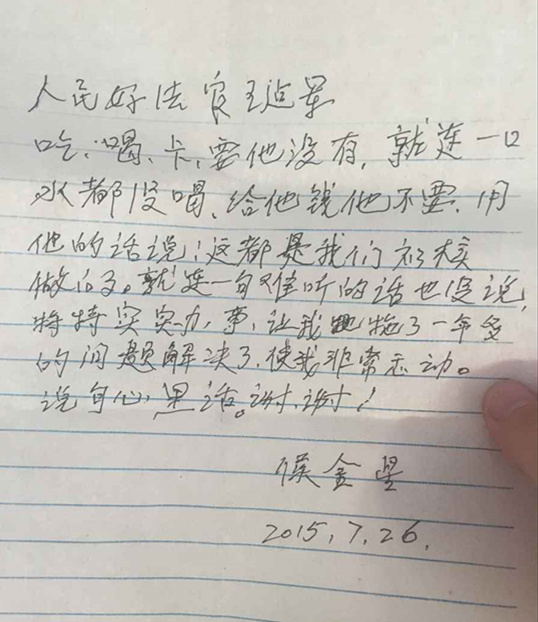 人民好法官王占军
吃、喝、卡、要他没有,就连一口
水都没喝、给他钱他不要、用
他的话说:这都是我们应该
做的。就连一句难听的话也没说,
特特实实办事,让我拖了一年多
的问题解决了,使我非常感动。
说句心里话。谢谢!
侯金星
2015,7,26,